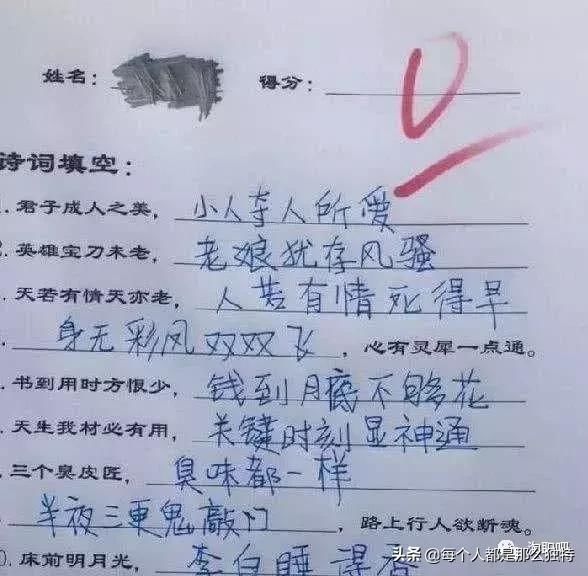 姓名： 得分： 0
诗词填空：
. 君子成人之美， 小人夺人所爱
. 英雄宝刀未老， 老娘犹存风骚
. 天若有情天亦老， 人若有情死得早
. 身无彩风双双飞 ，心有灵犀一点通。
. 书到用时方恨少， 钱到月底不够花
. 天生我材必有用， 关键时刻显神通
. 三个臭皮匠， 臭味都一样
. 半夜三更鬼敲门 ，路上行人欲断魂。
. 床前明月光， 李白睡得香
头条 @每个人都是那么独特